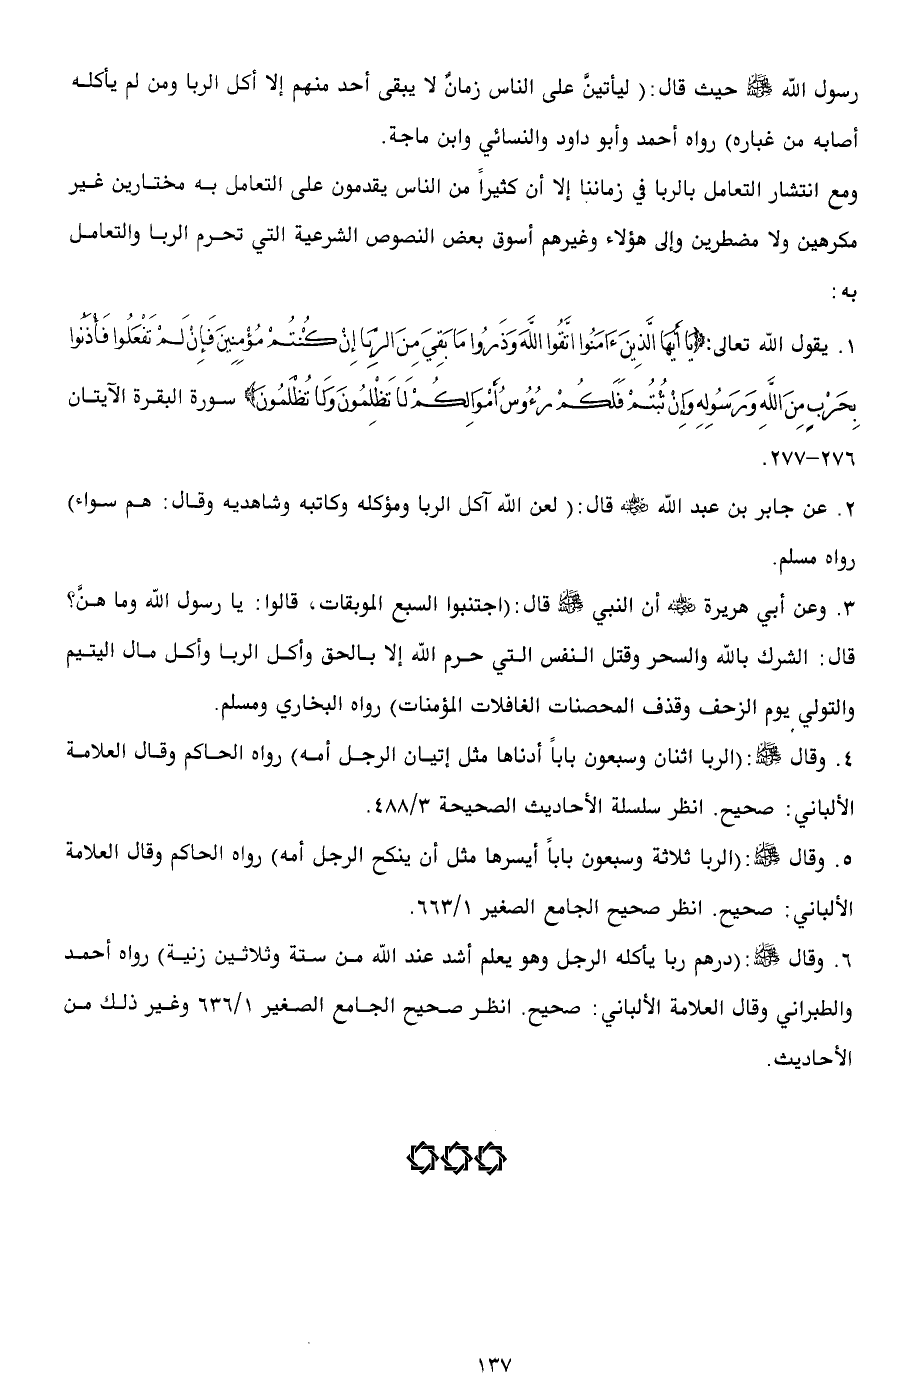 رسول الله ﷺ حيث قال:( ليأتينَّ على الناس زمانٌ لا يبقى أحد منهم إلا أكل الربا ومن لم يأكله
أصابه من غباره) رواه أحمد وأبو داود والنسائي وابن ماجة.
ومع انتشار التعامل بالربا في زماننا إلا أن كثيراً من الناس يقدمون على التعامل به مختارين غير
مكرهين ولا مضطرين وإلى هؤلاء وغيرهم أسوق بعض النصوص الشرعية التي تحرم الربا والتعامل
به:
١. يقول الله تعالى:﴿يَا أَيُّهَا الَّذِينَ ءَامَنُوا اتَّقُوا اللَّهَ وَذَرُوا مَا بَقِيَ مِنَ الرِّبَا إِنْ كُنْتُمْ مُؤْمِنِينَ فَإِنْ لَمْ تَفْعَلُوا فَأْذَنُوا
بِحَرْبٍ مِنَ اللَّهِ وَرَسُولِهِ وَإِنْ تُبْتُمْ فَلَكُمْ رُءُوسُ أَمْوَالِكُمْ لَا تَظْلِمُونَ وَلَا تُظْلَمُونَ﴾ سورة البقرة الآيتان
٢٧٦-٢٧٧.
٢. عن جابر بن عبد الله ﷺ قال:( لعن الله آكل الربا ومؤكله وكاتبه وشاهديه وقال: هم سواء)
رواه مسلم.
٣. وعن أبي هريرة رضي الله عنه أن النبي ﷺ قال:(اجتنبوا السبع الموبقات، قالوا: يا رسول الله وما هنَّ؟
قال: الشرك بالله والسحر وقتل النفس التي حرم الله إلا بالحق وأكل الربا وأكل مال اليتيم
والتولي يوم الزحف وقذف المحصنات الغافلات المؤمنات) رواه البخاري ومسلم.
٤. وقال ﷺ:(الربا اثنان وسبعون باباً أدناها مثل إتيان الرجل أمه) رواه الحاكم وقال العلامة
الألباني: صحيح. انظر سلسلة الأحاديث الصحيحة ٤٨٨/٣.
٥. وقال ﷺ:(الربا ثلاثة وسبعون باباً أيسرها مثل أن ينكح الرجل أمه) رواه الحاكم وقال العلامة
الألباني: صحيح. انظر صحيح الجامع الصغير ٦٦٣/١.
٦. وقال ﷺ:(درهم ربا يأكله الرجل وهو يعلم أشد عند الله من ستة وثلاثين زنية) رواه أحمد
والطبراني وقال العلامة الألباني: صحيح. انظر صحيح الجامع الصغير ٦٣٦/١ وغير ذلك من
الأحاديث.
١٣٧